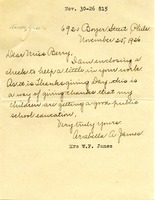 Nov. 30-26 $15
6920 Boyer Street Phila
November 25, 1926
Dear Miss Berry,
I am enclosing a
check to help a little in your work
As it is Thanksgiving Day, this is
a way of giving thanks that my
children are getting a good public
school education.
Very truly yours
Arabella A. James
Mrs W.P. James